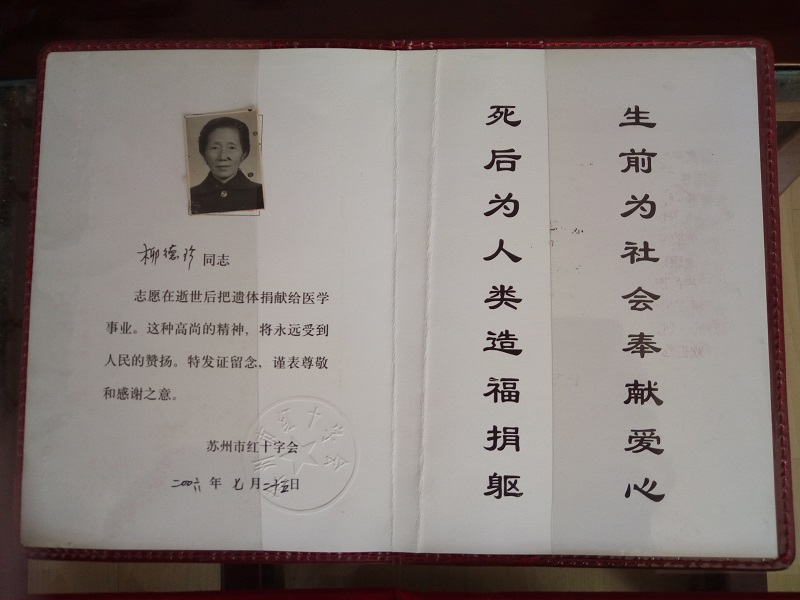 柳德珍 同志
志愿在逝世后把遗体捐献给医学
事业。这种高尚的精神，将永远受到
人民的赞扬。特发证留念，谨表尊敬
和感谢之意。
苏州市红十字会
二00六 年 七 月 二十五日
生前为社会奉献爱心
死后为人类造福捐躯